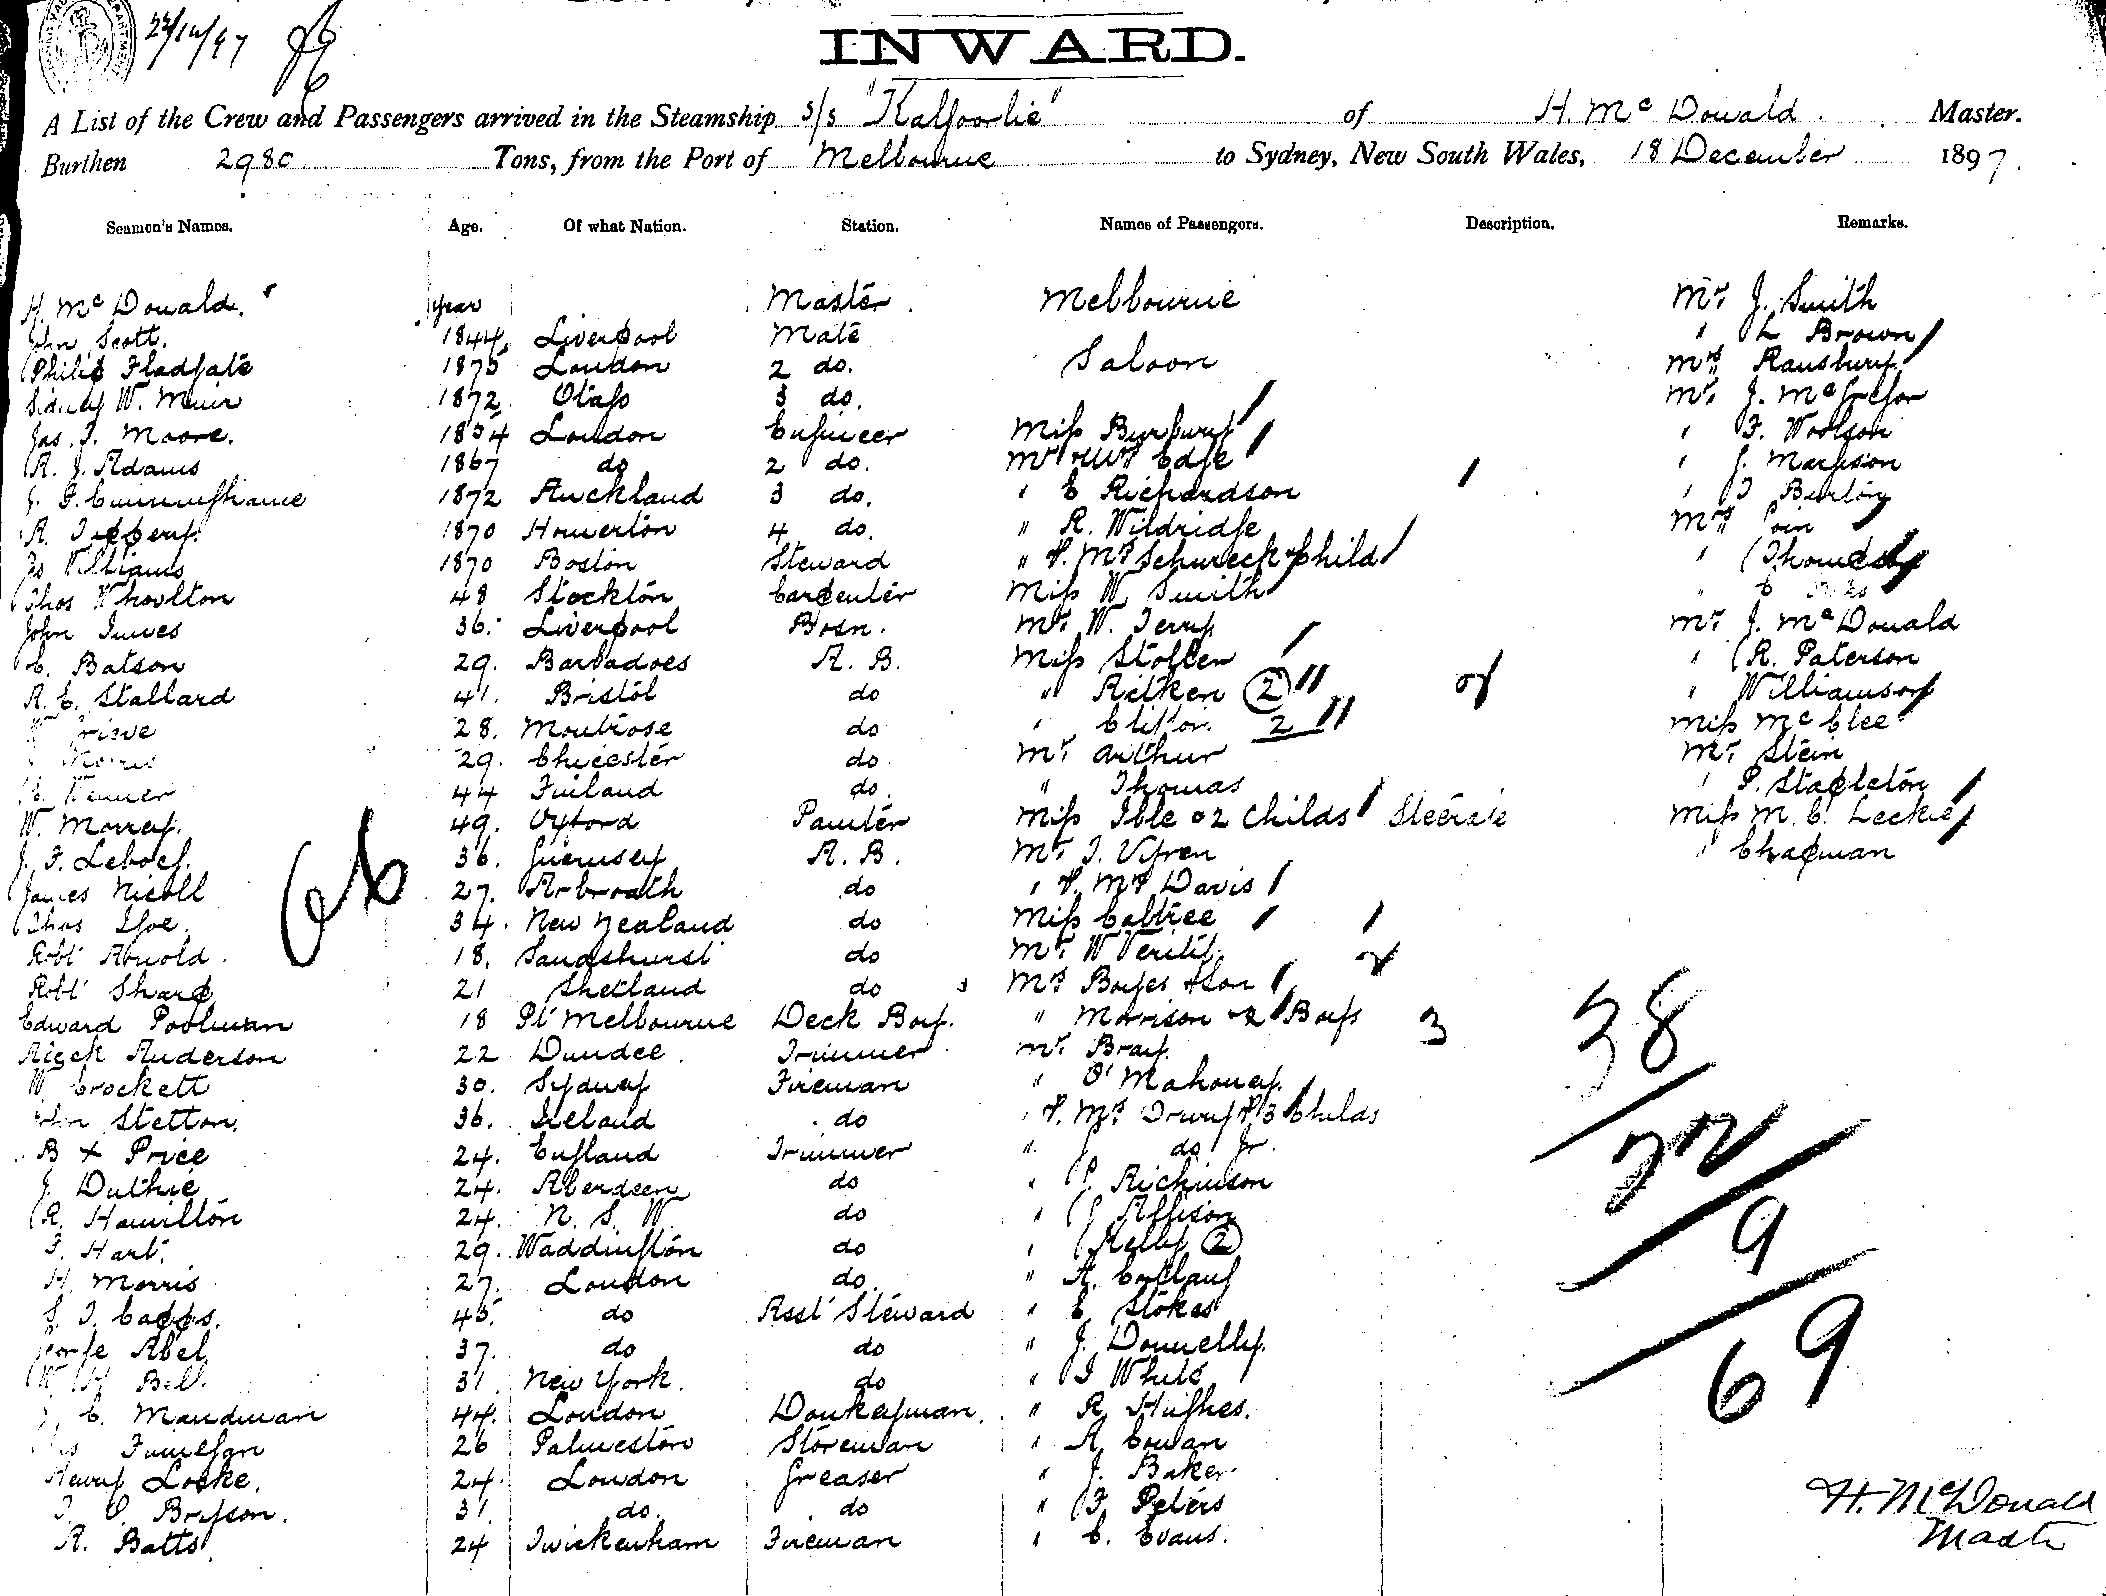 22/12/97
INWARD.
A List of the Crew and Passengers arrived in the Steamship s/s "Kalgoorlie" of H. McDonald Master.
Burthen 2980 Tons, from the Port of Melbourne to Sydney, New South Wales, 18 December 1897.
Seamen's Names. Age. Of what Nation. Station. Names of Passengers. Description. Remarks.
H. McDonald. year Master Melbourne Mr. J. Smith
John Scott. 1844 Liverpool Mate " L Brown
Philip Fladgate 1875 London 2 do. Saloon Mrs Ransbury
Sidney W. Muir 1872 3 do. Mr. J. McGregor
Jas. J. Moore. 1854 London Engineer Miss " F. Woolson
A. J. Adams 1867 do 2 do. Mr & Mrs Edge " J.
J. G. Cunninghame 1872 Auckland 3 do. " E Richardson " Burton
A. 1870 Homerton 4 do. " R. Wildridge Mrs
Williams 1870 Boston Steward " & Mrs Schureck & child "
Thos Whoolton 48 Stockton Carpenter Miss W. Smith "
John Innes 36. Liverpool Bosn. Mr. W. Terry Mr. J. McDonald
C. Batson 29. Barbadoes A. B. Miss " R. Paterson
R. E. Stallard 41. Bristol do " Aitken 2 " Williamson
28. Montrose do " Clifton 2 Miss McClee
Morris 29. Chicester do Mr. Arthur Mr. Stein
44 Finland do. " Thomas " P. Stapleton
W. Morrey. 49. Oxford Painter Miss Ible & 2 Childs Steerage Miss M. C. Leckie
J. F. 36. Guernsey A. B. Mr. J. " Chapman
James Nicoll 27. Arbroath do " & Mrs Davis
Thos 34. New Zealand do Miss Cabtree
Robt Arnold. 18. Sandshurst do Mr. W
Robt Sharp 21 Shetland do Mrs Boyes & Son
Edward Poolman 18 Pt Melbourne Deck Boy. " Morrison & 2 Boys 3
Anderson 22 Dundee. Trimmer Mr. Bray.
W Crockett 30. Sydney Fireman " O'Mahoney.
John Stetton. 36. Ireland do " & Mrs Drury & 3 Childs
B Price 24. England Trimmer " J do Jr.
J. Duthie 24. Aberdeen do " Richinson
R. Hamilton 24. N. S. W. do "
F. Hart. 29. Waddington do " Kelly 2
H. Morris 27. London do " A.
S. J. Capps. 45. do Asst Steward " E. Stokes
George Abel 37. do do " J. Donnelly.
W H Bell. 31 New York. do " J White
C. Mandman 44. London Donkeyman. " R. Hughes.
26 Palmeston Storeman " A Cowan
Henry Locke. 24. London Greaser " J. Baker
31 do. do " F. Peters
A. Batts 24 Twickenham Fireman " C. Evans.
66
38
22
9
69
H. McDonald
Master